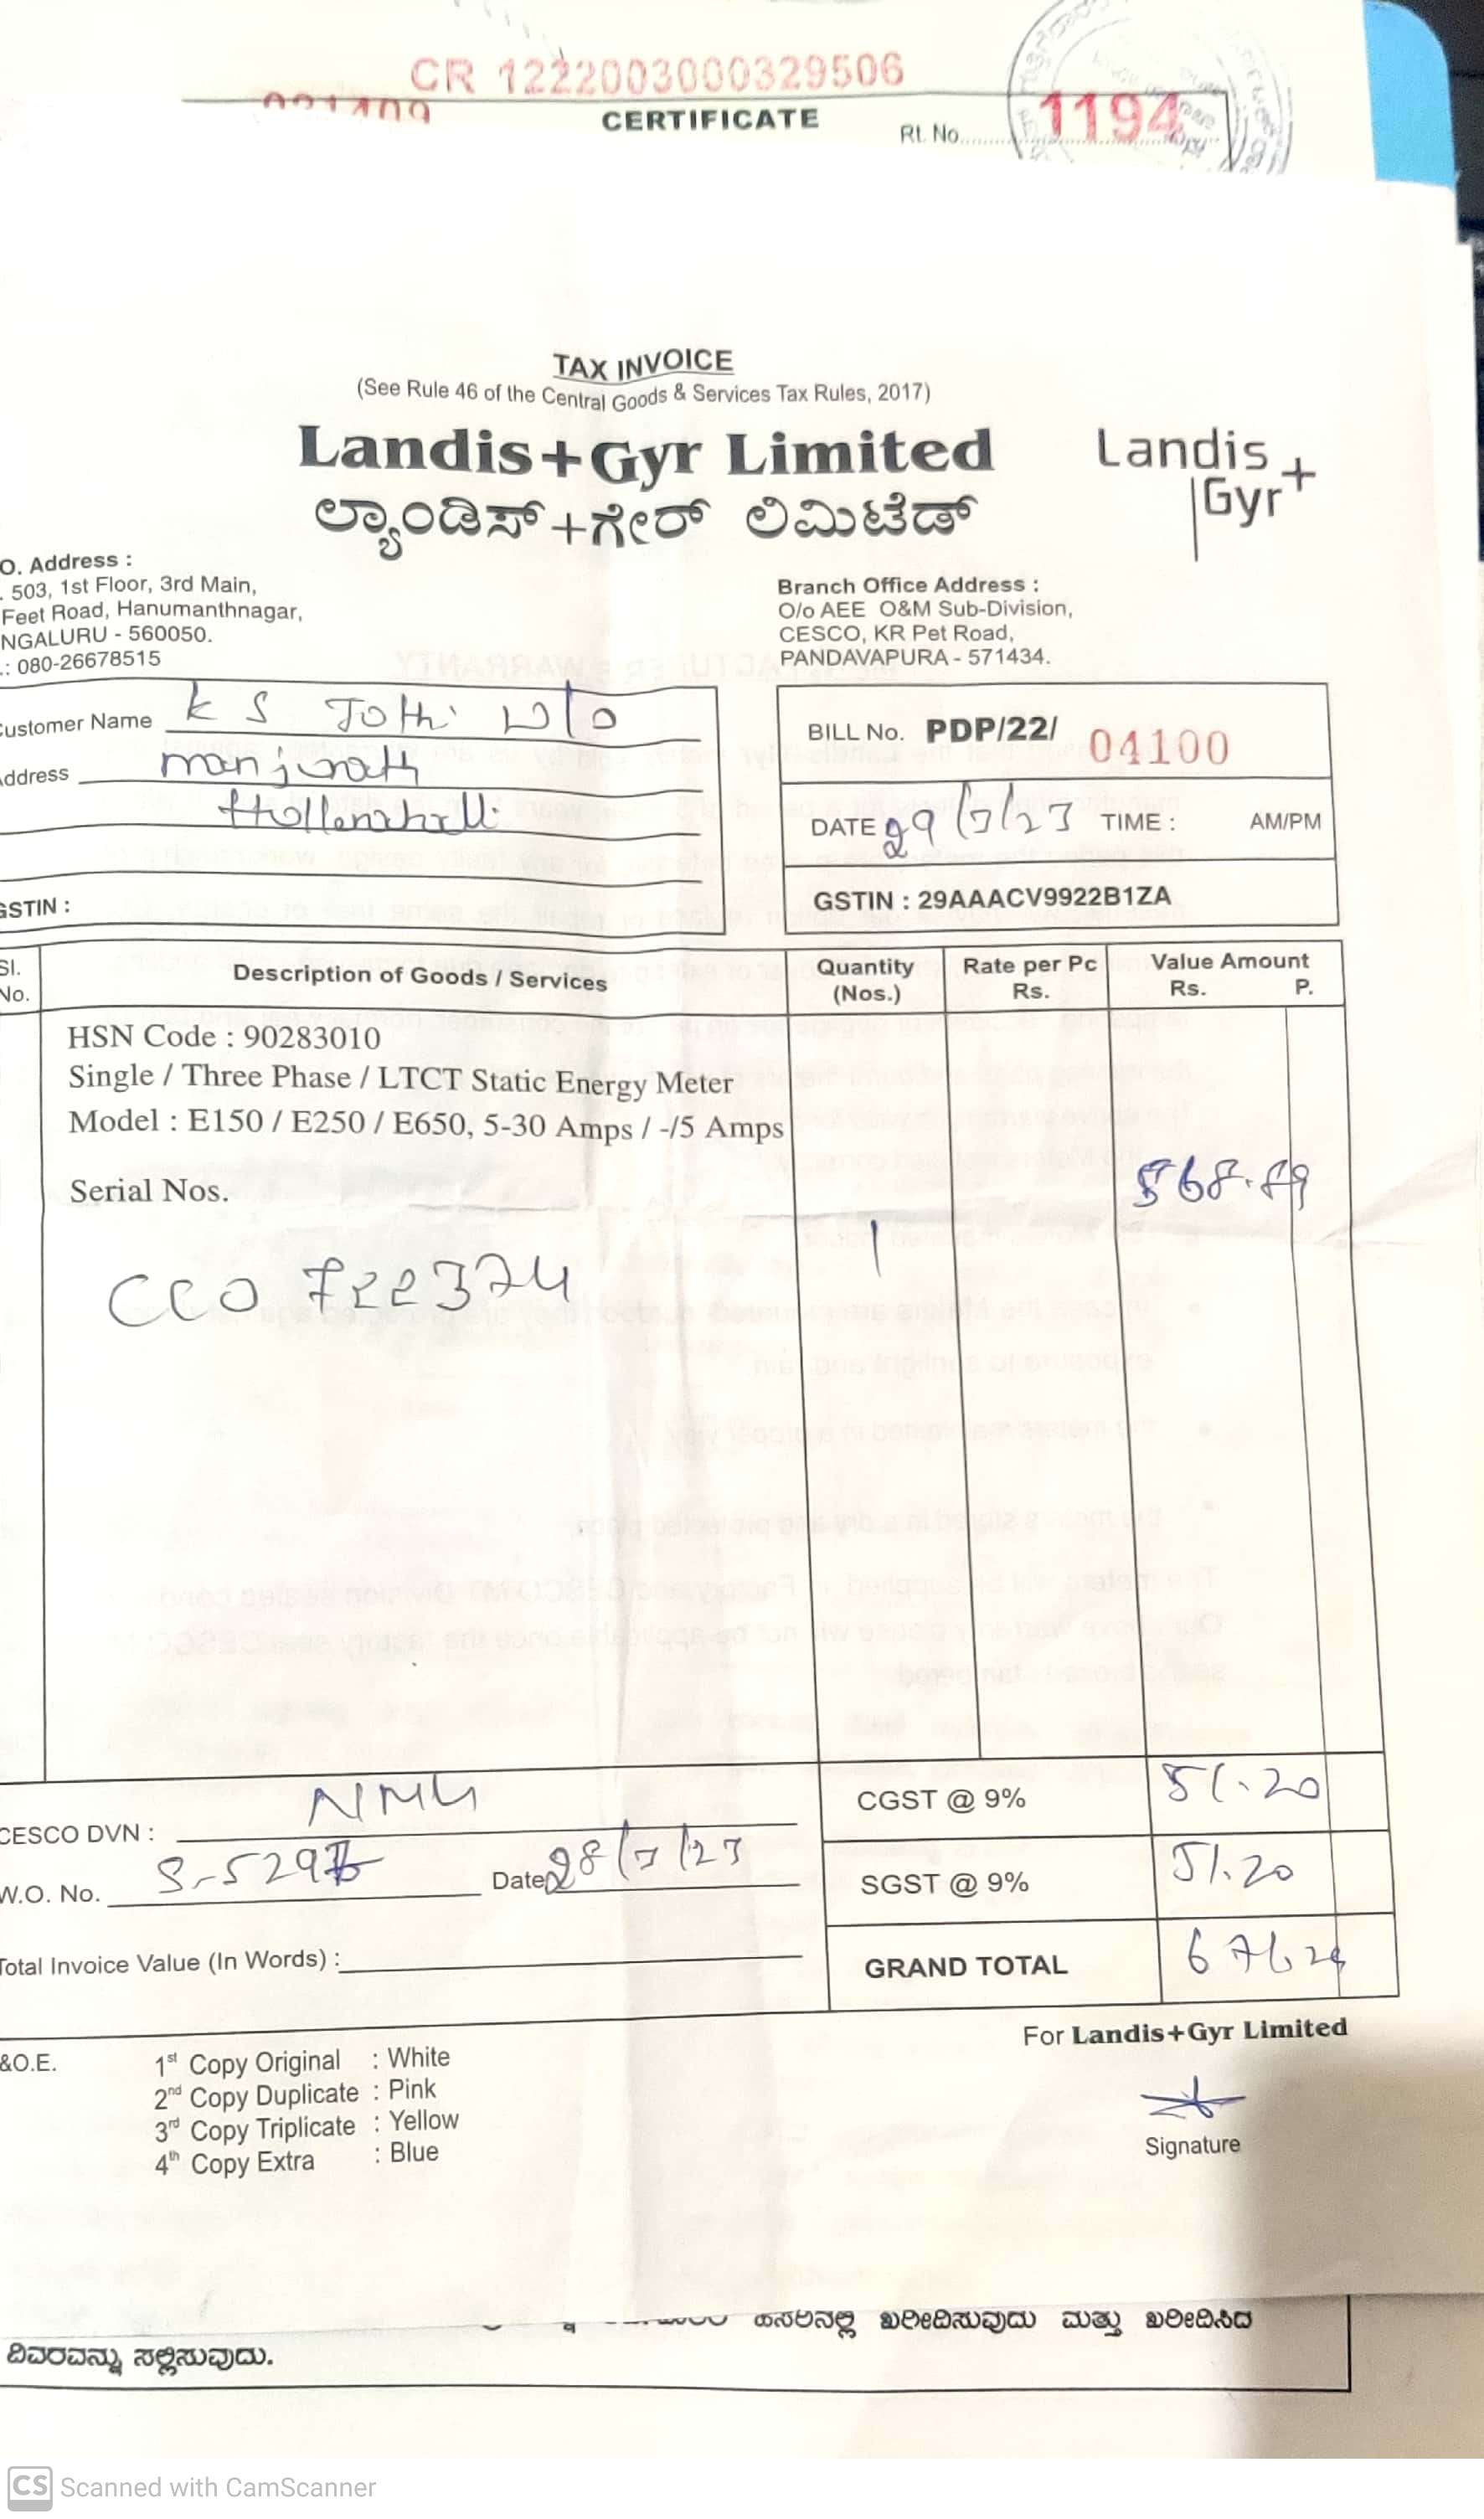 CR 1222003000329506
CERTIFICATE
Rt. No. 1194
TAX INVOICE
(See Rule 46 of the Central Goods & Services Tax Rules, 2017)
Landis+Gyr Limited
ಲ್ಯಾಂಡಿಸ್+ಗೇರ್ ಲಿಮಿಟೆಡ್
Landis
Gyr+
O. Address :
. 503, 1st Floor, 3rd Main,
Feet Road, Hanumanthnagar,
NGALURU - 560050.
.: 080-26678515
Branch Office Address :
O/o AEE O&M Sub-Division,
CESCO, KR Pet Road,
PANDAVAPURA - 571434.
ustomer Name K S Jothi W/o
ddress manjunath
BILL No. PDP/22/ 04100
DATE 29/7/23 TIME : AM/PM
GSTIN :
GSTIN : 29AAACV9922B1ZA
Sl. No.
Description of Goods / Services
Quantity (Nos.)
Rate per Pc Rs.
Value Amount Rs. P.
HSN Code : 90283010
Single / Three Phase / LTCT Static Energy Meter
Model : E150 / E250 / E650, 5-30 Amps / -/5 Amps
Serial Nos.
568.89
1
CCO 722374
CGST @ 9% 51.20
CESCO DVN :
SGST @ 9% 51.20
W.O. No. Date 28/7/23
Total Invoice Value (In Words) :
GRAND TOTAL
For Landis+Gyr Limited
&O.E.
1st Copy Original : White
2nd Copy Duplicate : Pink
3rd Copy Triplicate : Yellow
4th Copy Extra : Blue
Signature
ಹೆಸರಿನಲ್ಲಿ ಖರೀದಿಸುವುದು ಮತ್ತು ಖರೀದಿಸಿದ
ವಿವರವನ್ನು ಸಲ್ಲಿಸುವುದು.
CS Scanned with CamScanner